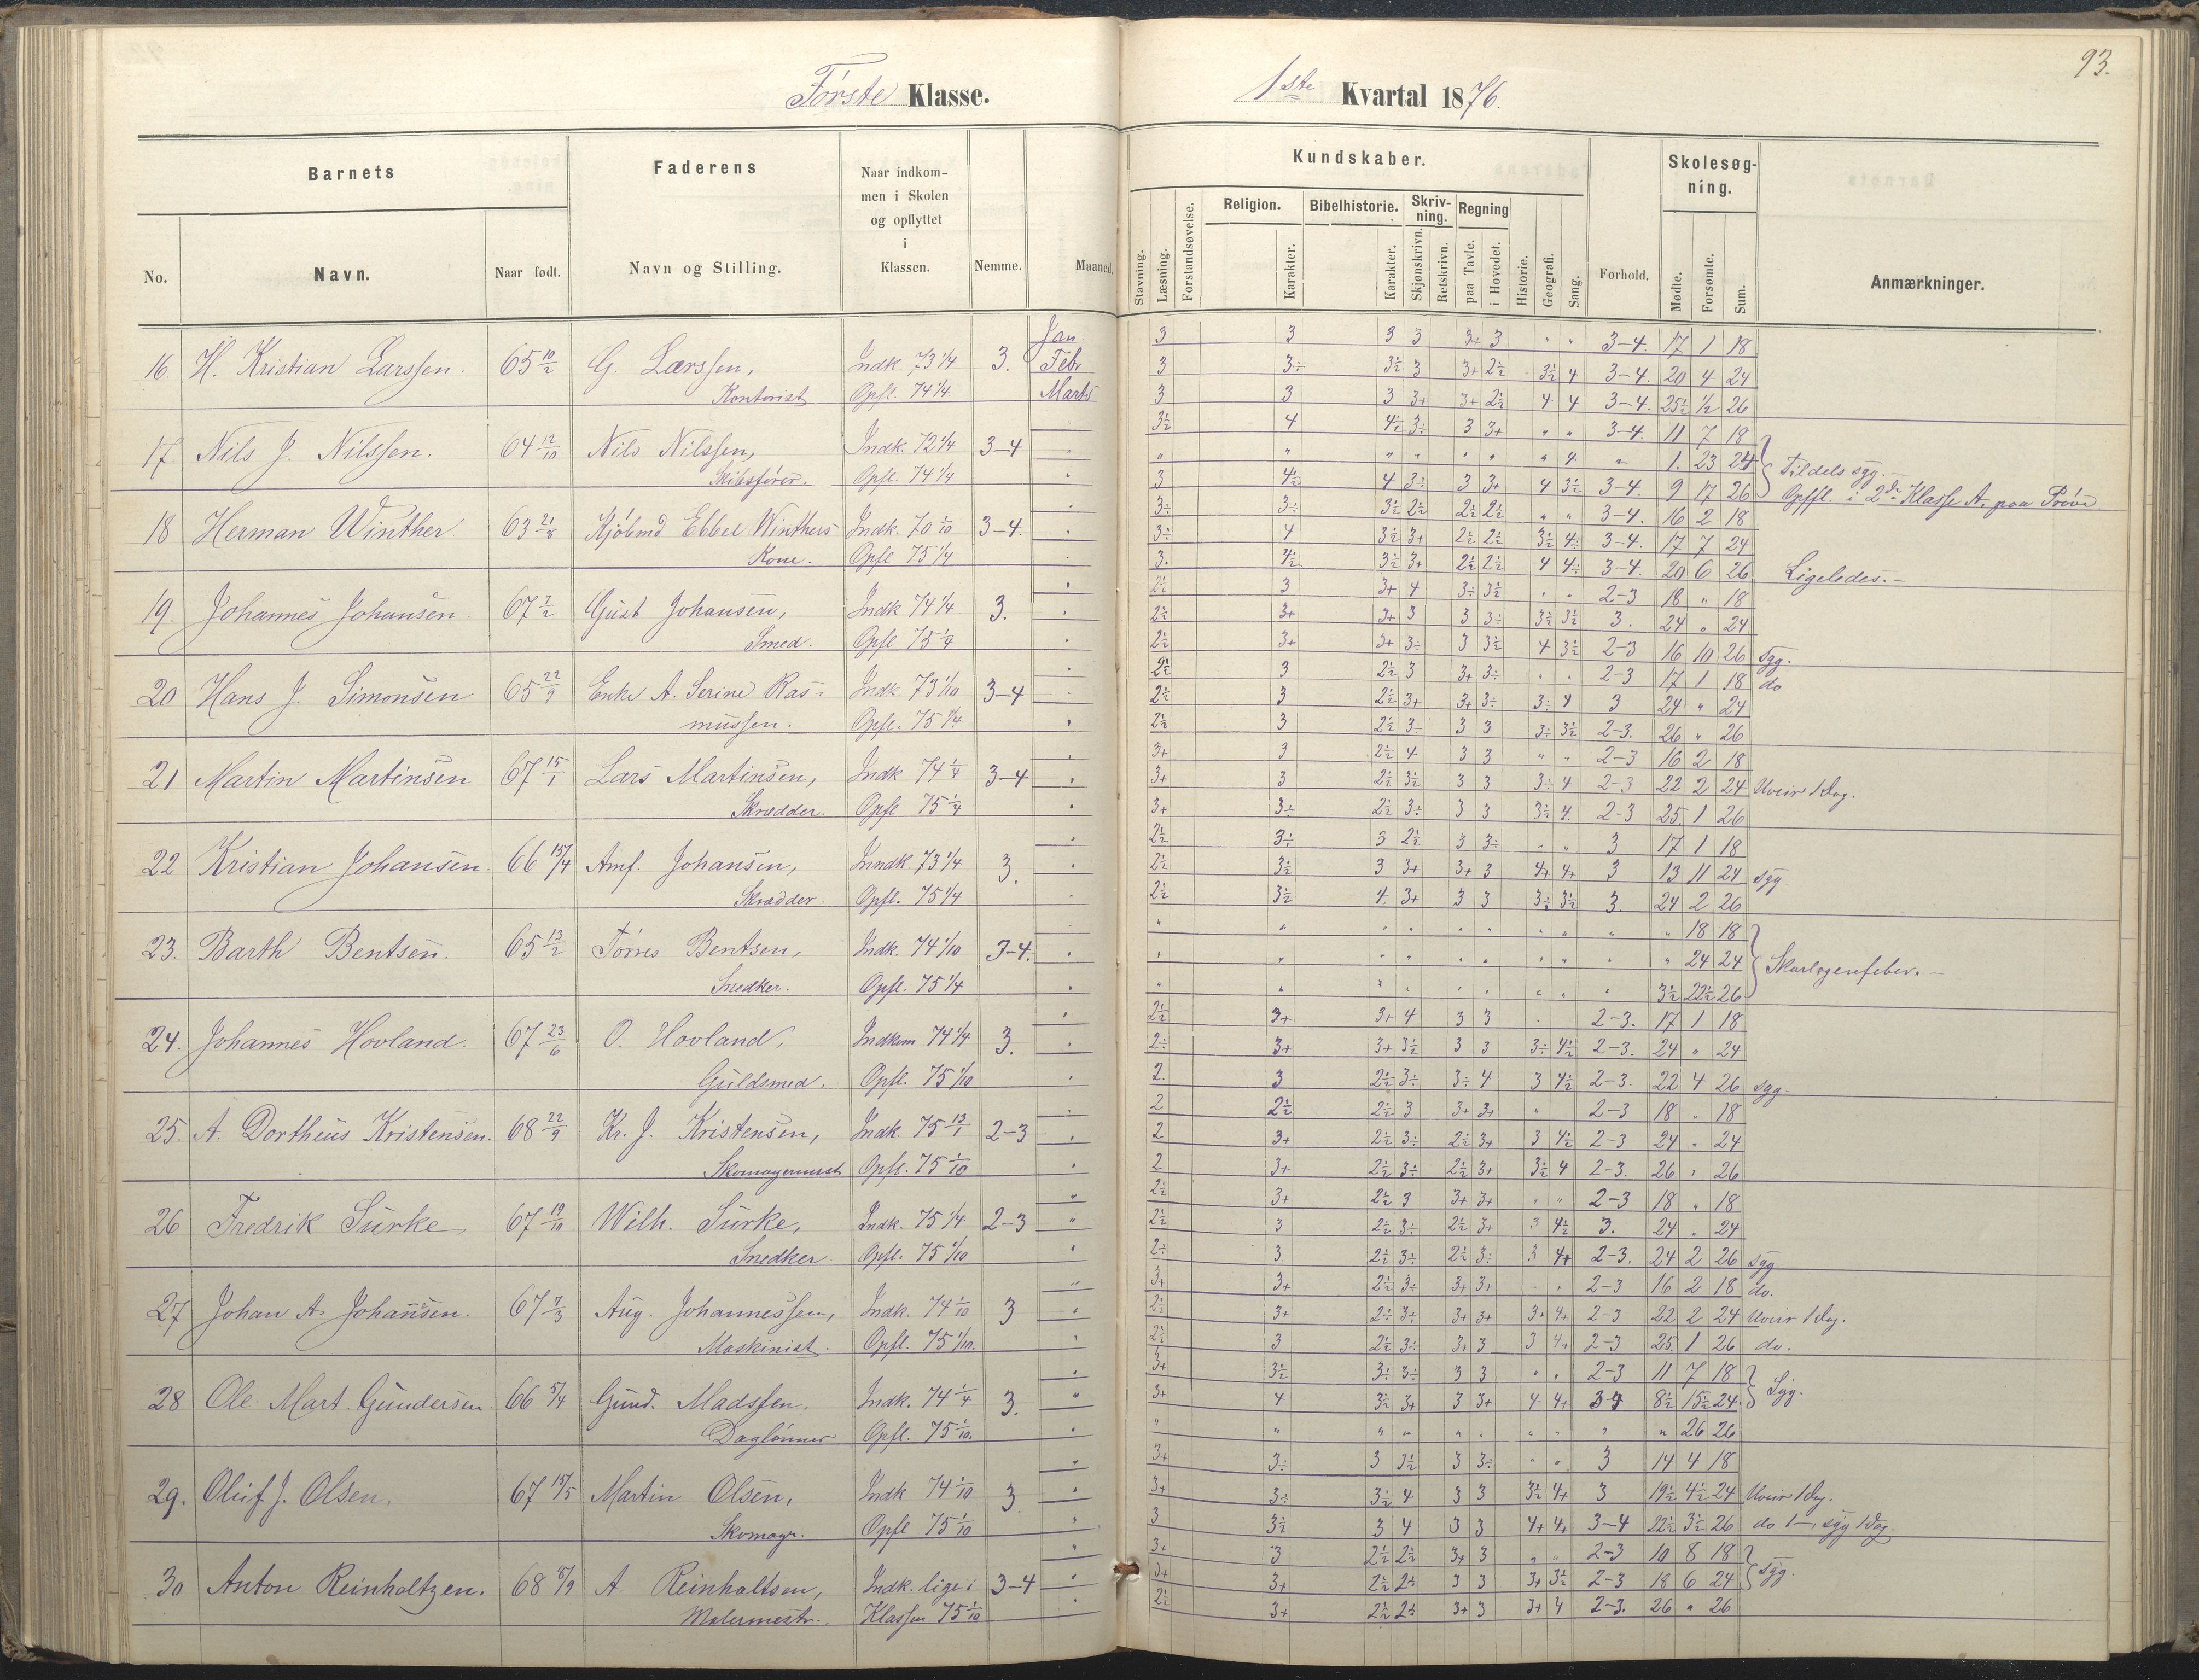 93.
Første Klasse.
1ste Kvartal 1876.
Barnets
Faderens
Naar indkom-
men i Skolen
og opflyttet
i
Klassen.
Nemme.
Maaned.
No.
Navn.
Naar født.
Navn og Stilling.
Kundskaber.
Skolesøg-
ning.
Stavning.
Læsning.
Forstandsøvelse.
Religion.
Karakter.
Bibelhistorie.
Karakter.
Skriv-
ning.
Skjønskrivn.
Retskrivn.
Regning
paa Tavle.
i Hovedet.
Historie.
Geografi.
Sang.
Forhold.
Mødte.
Forsømte.
Sum.
Anmærkninger.
16 H. Kristian Larssen. 65 10/2 G. Larssen, Indk. 73 1/4 3. Jan. 3 3 3 3 3+ 3 " " 3-4. 17 1 18
Febr 3 3÷ 3½ 3 3+ 2½ 3½ 4 3-4. 20 4 24
Kontorist Opfl. 74 1/4 Marts 3 3 3 3+ 3+ 2½ 4 4 3-4. 25½ ½ 26
17. Nils J. Nilssen. 64 12/10 Nils Nilssen, Indk. 72 1/4 3-4 3½ 4 4½ 3÷ 3 3+ " " 3-4. 11 7 18
" " " " " " " 4 " 1. 23 24 Tildels syg.
Skibsfører. Opfl. 74 1/4 3 4½ 4 3÷ 3 3+ 4 3½ 3-4. 9 17 26 Opffl. i 2de Klasse A. paa Prøve
18 Herman Winther 63 21/8 Kjøbmd Ebbel Winthers Indk. 70 1/10 3-4. 3÷ 3÷ 3½ 2½ 2½ 2½ " " 3-4. 16 2 18
3÷ 4 3½ 3+ 2½ 2½ 3½ 4÷ 3-4. 17 7 24
Kone. Opfl 75 1/4 3. 4½ 3½ 3+ 2½ 2½ 4 4÷ 3-4. 20 6 26 Ligeledes.-
19. Johannes Johansen. 67 7/2 Gust Johansen, Indk 74 1/4 3. 2½ 3 3+ 4 3÷ 3½ " " 2-3 18 " 18
2½ 3+ 3+ 3 3 3÷ 3½ 3½ 3. 24 " 24
Smed. Opfl 75 1/4 2½ 3+ 3+ 3÷ 3 3½ 4 3½ 2-3 16 10 26 syg.
20 Hans J. Simonsen 65 22/9 Enke A. Serine Ras- Indk 73 1/10 3-4 2½ 3 2½ 3 3+ 3÷ " " 2-3 17 1 18 do
2½ 3 2½ 3+ 3+ 3÷ 3÷ 4 3 24 " 24
mussen. Opfl. 75 1/4 2½ 3 2½ 3 3 3 3÷ 3½ 2-3. 26 " 26
21 Martin Martinsen 67 15/1 Lars Martinsen, Indk 74 1/4 3-4 3+ 3 2½ 4 3 3 " " 2-3 16 2 18
3+ 3 2½ 3½ 3 3 3÷ 4 2-3 22 2 24 Uveir 1 Dag.
Skrædder. Opfl 75 1/4 3+ 3÷ 2½ 3÷ 3 3 3½ 4. 2-3 25. 1 26
22 Kristian Johansen. 66 15/4 Amf. Johansen, Inndk. 73 1/4 3. 2½ 3÷ 3 2½ 3 3÷ " " 3 17 1 18
2½ 3½ 3 3+ 3+ 3 4+ 4+ 3 13 11 24 syg.
Skrædder. Opfl. 75 1/4 2½ 3½ 4. 3+ 3 3 3½ 3½ 3. 24 2 26
23. Barth Bentsen. 65 13/2 Tørres Bentsen, Indk. 74 1/10 3-4. " " " " " " " " " " 18 18
" " " " " " " " " " 24 24 Skarlagensfeber.-
Snedker. Opfl. 75 1/4 " " " " " " " " " 3½ 22½ 26
24. Johannes Hovland. 67 23/6 O. Hovland, Indkom 74 1/4 3. 2½ 3+ 3+ 4 3 3 2-3. 17 1 18
2÷ 3+ 3+ 3½ 3 3 3÷ 4½ 2-3. 24 " 24
Guldsmed. Opfl. 75 1/10 2. 3 2½ 3÷ 3÷ 4 3 4½ 2-3. 22 4 26 syg.
25. A. Dortheus Kristensen. 68 22/9 Kr. J. Kristensen, Indk. 75 13/1 2-3 2 2½ 2½ 3 3+ 3+ " 2-3 18 " 18
2 3+ 2½ 3÷ 2½ 3+ 3 4½ 2-3 24 " 24
Skomagermest Opfl. 75 1/10 2 3+ 2½ 3÷ 2½ 3+ 3½ 4 2-3. 26 " 26
26 Fredrik Surke, 67 19/10 Wilh. Surke, Indk. 75 1/4 2-3 2½ 3+ 2½ 3 3+ 3+ " " 2-3 18 " 18
2½ 3 2½ 3÷ 2½ 3+ 3 4½ 3. 24 " 24
Snedker. Opfl. 75 1/10 2÷ 3 2½ 3÷ 2½ 3÷ 3 4+ 2-3. 24 2 26 syg.
27 Johan A. Johansen. 67 7/3 Aug. Johannessen, Indk. 74 1/10 3 3+ 3+ 2½ 3÷ 3+ 3+ " " 2-3 16 2 18 do.
2½ 3+ 2÷ 3+ 3+ 3+ 3+ 4+ 2-3 22 2 24 Uveir 1 Dag.
Maskinist. Opfl. 75 1/10. 2½ 3 2½ 3÷ 3+ 3 3 4+ 2-3 25. 1 26 do.
28 Ole Mart. Gundersen 66 5/4 Gund. Madssen, Indk. 74 1/4 3. 3+ 3½ 3÷ 3÷ 3 3 " " 2-3 11 7 18
3+ 4 3½ 3+ 3 3+ 4 4+ 3-4 8½ 15½ 24 Syg.
Daglønner Opfl. 75 1/10. " " " " " " " " " " 26 26
29. Oluf J. Olsen. 67 15/5 Martin Olsen, Indk 74 1/10 3 3+ 3÷ 3 3½ 3 3÷ " " 3 14 4 18
3+ 3÷ 3½ 4 3 3 3½ 4+ 3 19½ 4½ 24 Uveir 1 Dag.
Skomagr. Opfl 75 1/10 3 3½ 3 4 3 3 4+ 4+ 3-4 22½ 3½ 26 do 1-, syg 1 Dag.
30 Anton Reinholtzen. 68 8/9 A Reinholtsen, Indk. lige i 3-4 3+ 3 2½ 2½ 3+ 3 " " 2-3 10 8 18
3+ 3+ 2½ 2÷ 3 3 3+ 3½ 2-3 18 6 24 syg.
Malermestr. Klassen 75 1/10 2½ 3+ 2½ 2÷ 3+ 3 3+ 4 2-3. 26 " 26